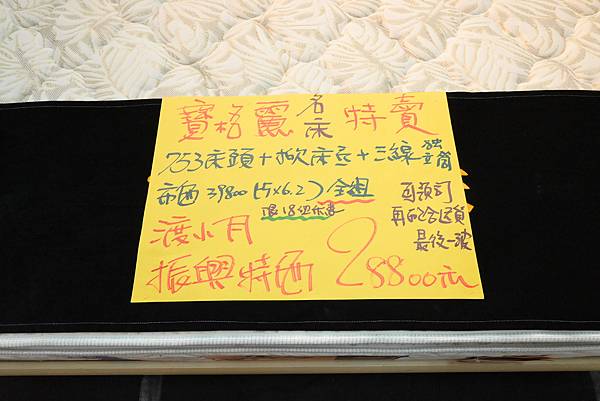 寶格麗名床特賣
753床頭+掀床底+三線獨立筒
市價39800(5x6.2)全組
限18組
可預訂
再配合送貨
最後一波
渡小月
振興特價28800元